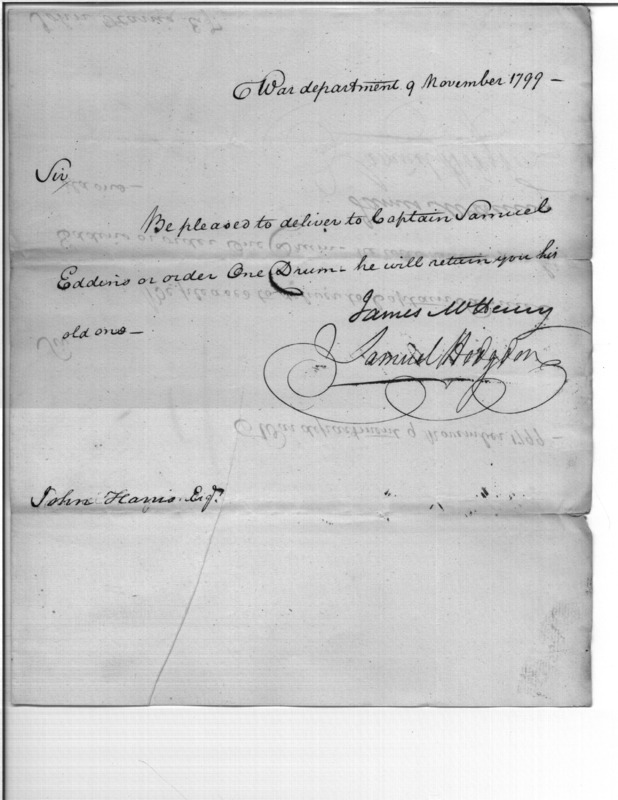 War department 9 November 1799 –
Sir
Be pleased to deliver to Captain Samuel
Eddins or order One Drum – he will retain you his
old one –
James McHenry
Samuel Hodgdon
John Harris Esqr.